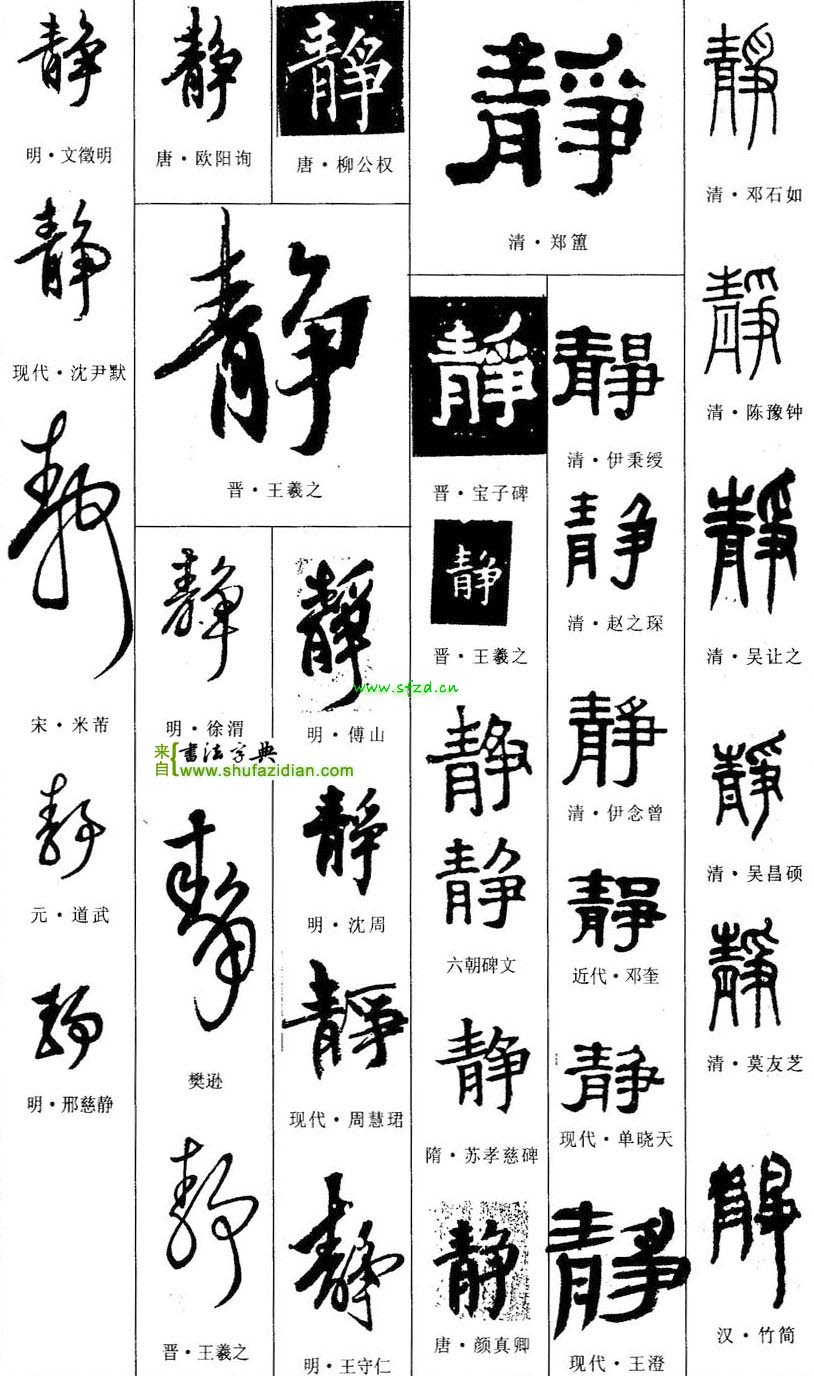 静
明·文徵明
静
现代·沈尹默
静
宋·米芾
静
元·道武
静
明·邢慈静
静
唐·欧阳询
静
唐·柳公权
静
晋·王羲之
静
明·徐渭
静
樊逊
静
晋·王羲之
靜
明·傅山
靜
明·沈周
靜
现代·周慧珺
靜
明·王守仁
靜
清·郑簠
靜
晋·宝子碑
静
晋·王羲之
静
静
六朝碑文
静
隋·苏孝慈碑
静
唐·颜真卿
靜
清·伊秉绶
静
清·赵之琛
靜
清·伊念曾
靜
近代·邓奎
静
现代·单晓天
靜
现代·王澄
靜
清·邓石如
靜
清·陈豫钟
靜
清·吴让之
靜
清·吴昌硕
靜
清·莫友芝
靜
汉·竹简
www.sfzd.cn
来自{书法字典
www.shufazidian.com